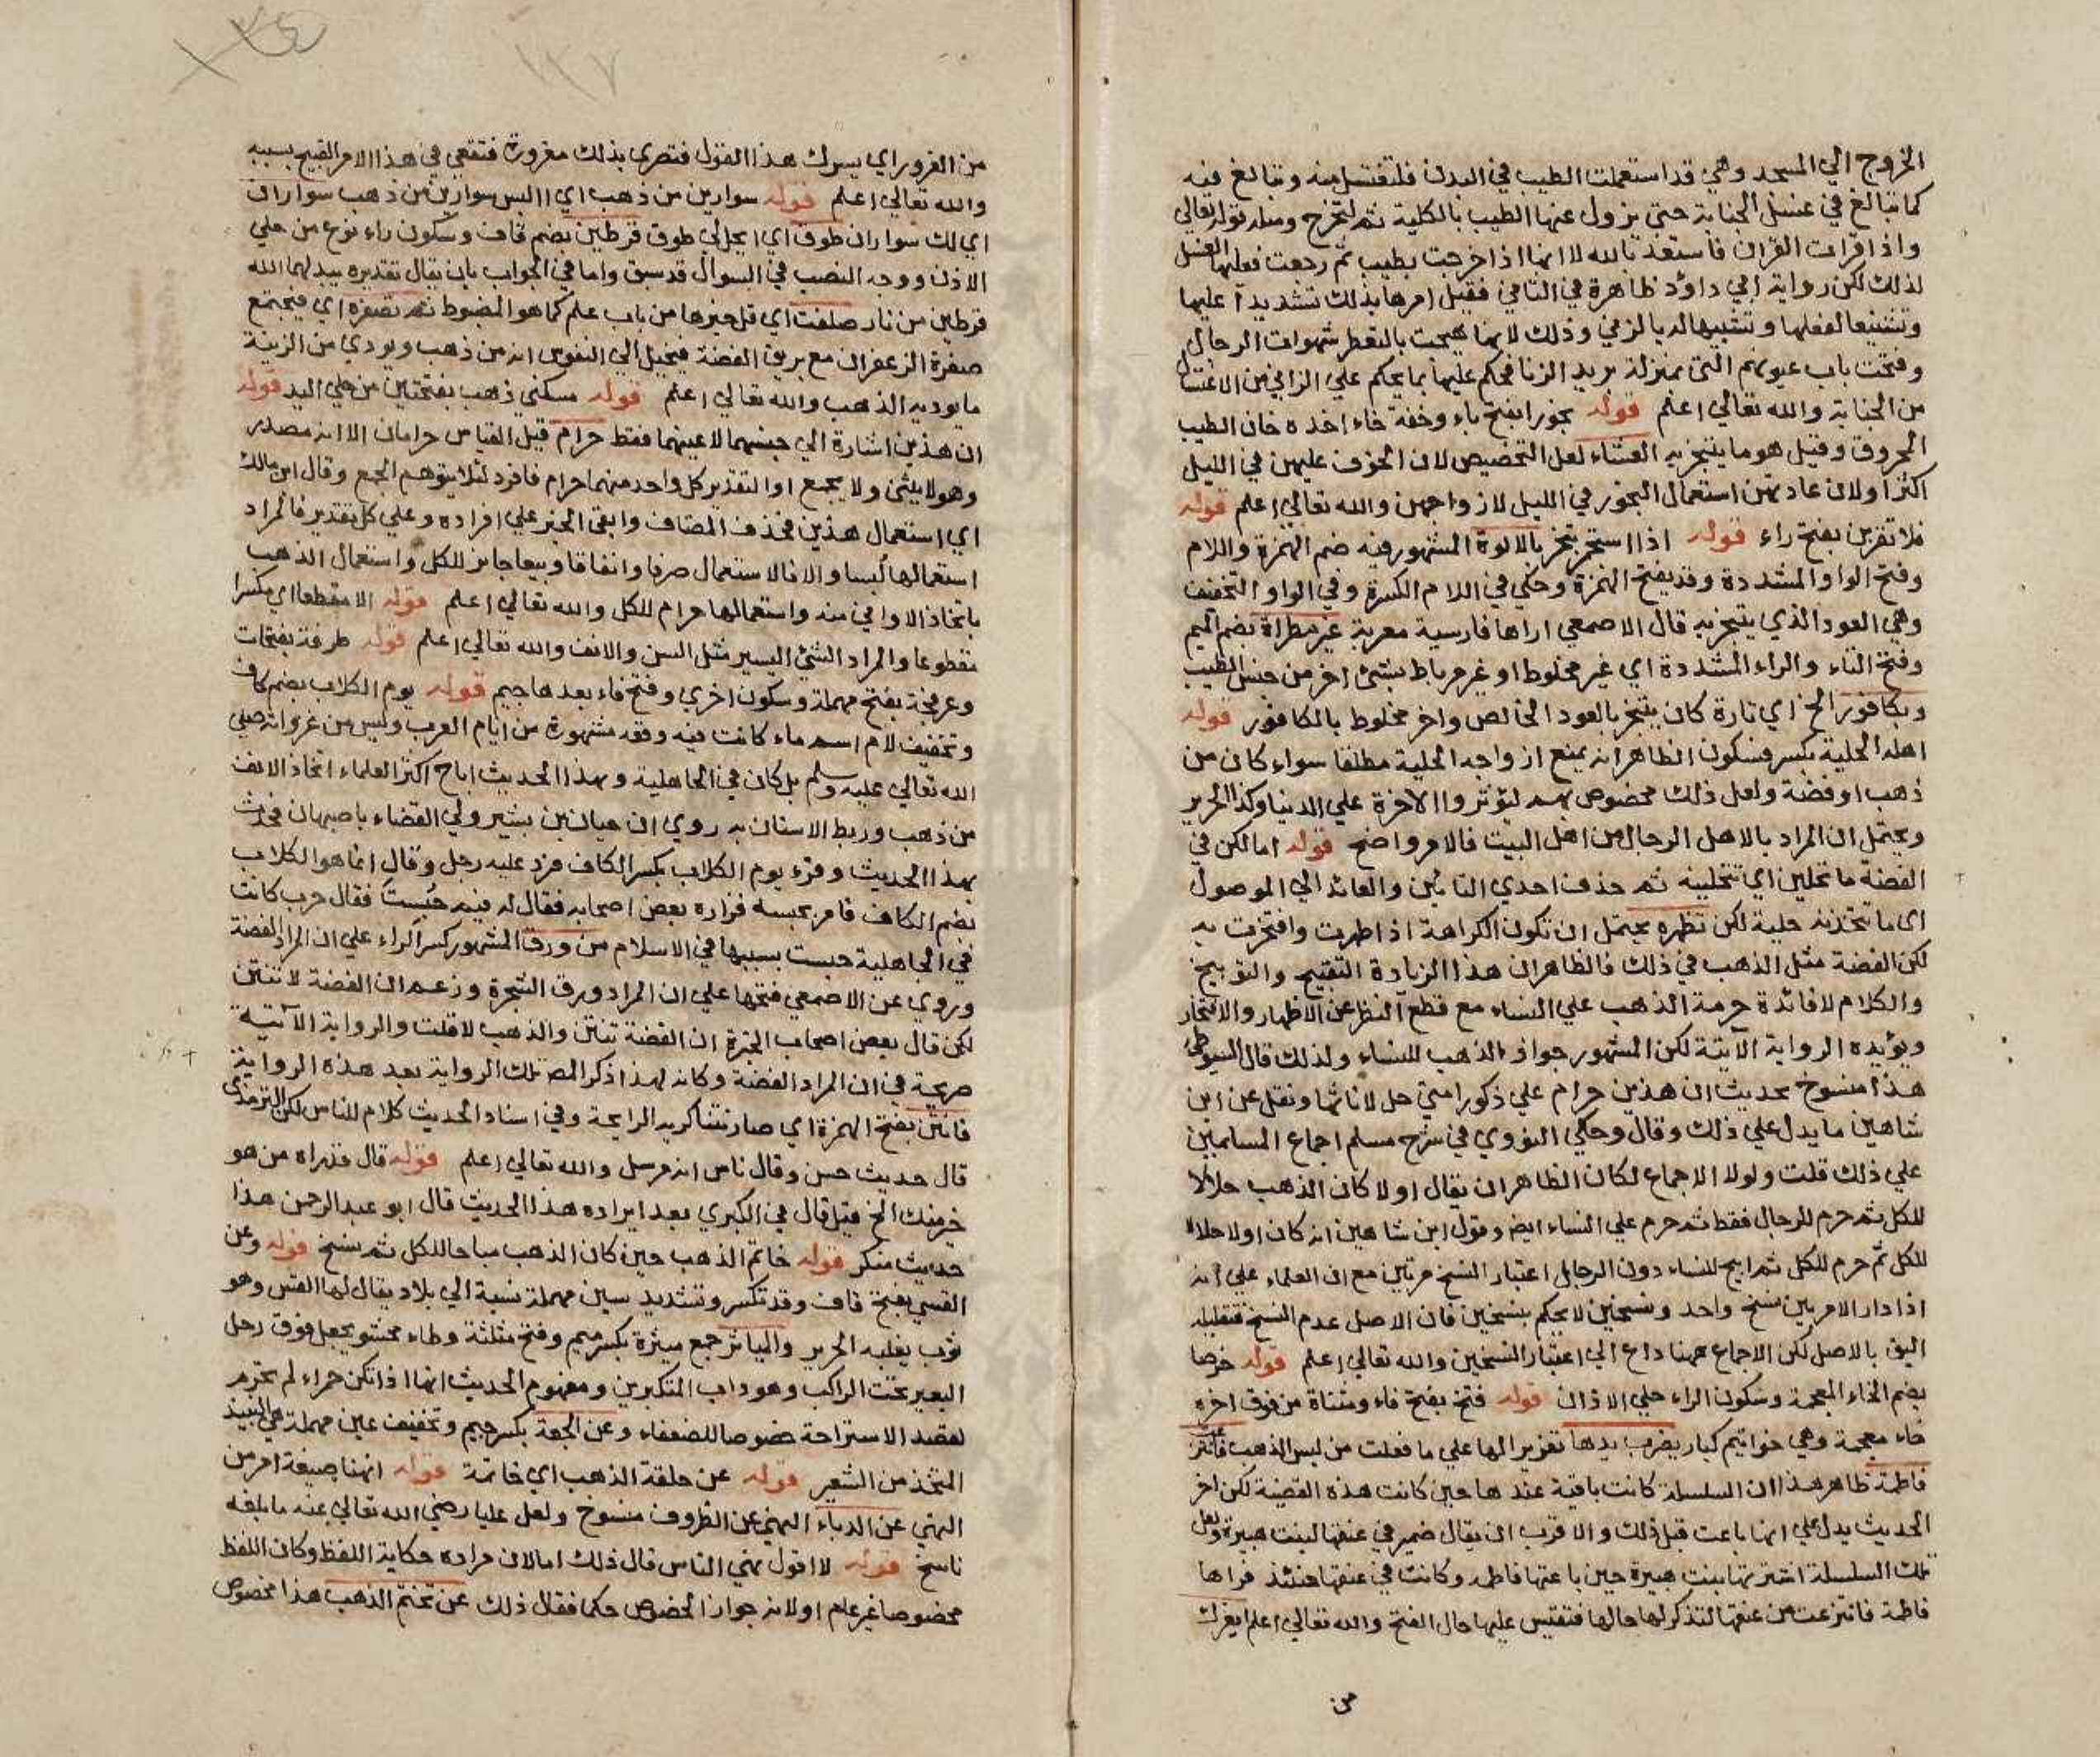 الخروج الي المسجد وهي قد استعملت الطيب في البدن فلتغتسل منه وتبالغ فيه
كما تبالغ في غسل الجنابة حتى يزول عنها الطيب بالكلية ثم لتخرج ومثله قوله تعالي
واذا قرات القران فاستعذ بالله لا انها اذا خرجت بطيب ثم رجعت فعليها الغسل
لذلك لكن رواية ابي داؤد ظاهرة في الثاني فقيل امرها بذلك تشديدا عليها
وتشنيعا لفعلها وتشبيها له بالزني وذلك لانها هيجت بالتعطر شهوات الرجال
وفتحت باب عيونهم التي بمنزلة بريد الزنا فحكم عليها بما يحكم علي الزاني من الاغتسال
من الجنابة والله تعالي اعلم قوله بخورا بفتح باء وخفة خاء اخذه خان الطيب
المحروق وقيل هو ما يتبخر به العشاء لعل التخصيص لان الخوف عليهن في الليل
اكثر او لان عادتهن استعمال البخور في الليل لازواجهن والله تعالي اعلم قوله
فلا تقربن بفتح راء قوله اذا استجمر بتجمر بالالوة المشهور فيه ضم الهمزة واللام
وفتح الواو المشددة وقد يفتح الهمزة وحكي في اللام الكسرة وفي الواو التخفيف
وهي العود الذي يتبخر به قال الاصمعي اراها فارسية معربة غير مطراة بضم الميم
وفتح التاء والراء المشددة اي غير مخلوط او غير مرباط بشئ اخر من جنس الطيب
وبكافور الخ اي تارة كان يتبخر بالعود الخالص واخر مخلوط بالكافور قوله
اهله الحلية بكسر فسكون الظاهر انه يمنع ازواجه الحلية مطلقا سواء كان من
ذهب او فضة ولعل ذلك مخصوص بهم ليؤثروا الاخرة علي الدنيا وكذا الحرير
ويحتمل ان المراد بالاهل الرجال من اهل البيت فالامر واضح قوله اما لكن في
الفضة ما تحلين اي تتحلينه ثم حذف احدي التائين والعائد الي الموصول
اي ما تتخذنه حلية لكن تظهره يحتمل ان تكون الكراهة اذا ظهرت وافتخرت به
لكن الفضة مثل الذهب في ذلك فالظاهر ان هذا الزيادة التقبيح والتوبيخ
والكلام لافائدة حرمة الذهب علي النساء مع قطع النظر عن الاظهار والافتخار
ويؤيده الرواية الآتية لكن المشهور جواز الذهب للنساء ولذلك قال السيوطي
هذا منسوخ بحديث ان هذين حرام علي ذكور امتي حل لاناثها ونقل عن ابن
شاهين ما يدل علي ذلك وقال وحكي النووي في شرح مسلم اجماع المسلمين
علي ذلك قلت ولولا الاجماع لكان الظاهر ان يقال اولا كان الذهب حلالا
للكل ثم حرم للرجال فقط ثم حرم علي النساء ايضا وقول ابن شاهين انه كان اولا حلالا
للكل ثم حرم للكل ثم ابيح للنساء دون الرجال اعتبار النسخ مرتين مع ان العلماء علي انه
اذا دار الامر بين نسخ واحد ونسخين لا يحكم بنسخين فان الاصل عدم النسخ فتقليله
اليق بالاصل لكن الاجماع ههنا داع الي اعتبار النسخين والله تعالي اعلم قوله خرصا
بضم الخاء المعجمة وسكون الراء حلي الاذان قوله فتخ بفتح فاء ومثناة من فوق اخره
خاء معجمة وهي خواتيم كبار يضرب يدها تعزيرا لها علي ما فعلت من لبس الذهب
فاطمة ظاهر هذا ان السلسلة كانت باقية عندها حين كانت هذه القضية لكن اخر
الحديث يدل علي انها باعت قبل ذلك والاقرب ان يقال ضمير في عنقها لبنت هبيرة ولعل
تلك السلسلة اشترتها بنت هبيرة حين باعتها فاطمه وكانت في عنقها حنئذ فراها
فاطمة فانتزعت من عنقها لتذكر لها حالها فتقتبس عليها حال الفتخ والله تعالي اعلم ايغرك
من
من الغرور اي يسرك هذا القول فتصري بذلك مغرورة فتقعي في هذا الامر القبيح بسببه
والله تعالي اعلم قوله سوارين من ذهب اي االبس سوارين من ذهب سواران
اي لك سواران طوق اي ايحل لي طوق قرطين بضم قاف وسكون راء نوع من حلي
الاذن ووجه النصب في السوال قد سبق واما في الجواب بان يقال تقديره يبدلهما الله
قرطين من نار صلفت اي قل خيرها من باب علم كما هو المضبوط ثم تصفره اي فيجتمع
صفرة الزعفران مع بريق الفضة فيخيل الي النفوس انه من ذهب ويودي من الزينة
ما يوديه الذهب والله تعالي اعلم قوله مسكتي ذهب بفتحتين من حلي اليد قوله
ان هذين اشارة الي جنسهما لا عينهما فقط حرام قيل القياس حرامان الا انه مصدر
وهو لا يثني ولا يجمع او التقدير كل واحد منهما حرام فافرد لئلا يتوهم الجمع وقال ابن مالك
اي استعمال هذين فحذف المضاف وابقي الخبر علي افراده وعلي كل تقدير فالمراد
استعمالها لبسا والا فالاستعمال صرفا وانفاقا وبيعا جايز للكل واستعمال الذهب
باتخاذ الاواني منه واستعمالها حرام للكل والله تعالي اعلم قوله الا مقطعا اي مكسرا
مقطوعا والمراد الشئ اليسير مثل السن والانف والله تعالي اعلم قوله طرفة بفتحات
وعرفجة بفتح مهملة وسكون اخري وفتح فاء بعدها جيم قوله يوم الكلاب بضم كاف
وتخفيف لام اسم ماء كانت فيه وقعة مشهورة من ايام العرب وليس من غزواته صلي
الله تعالي عليه وسلم بل كان في الجاهلية وبهذا الحديث اباح اكثر العلماء اتخاذ الانف
من ذهب وربط الاسنان به روي ان حيان بن بشير ولي القضاء باصبهان فحدث
بهذا الحديث وقرء يوم الكلاب بكسر الكاف فرد عليه رجل وقال انما هو الكلاب
بضم الكاف فامر بحبسه فزاره بعض اصحابه فقال له فيم حُبست فقال حرب كانت
في الجاهلية حبست بسببها في الاسلام من ورق المشهور كسر الراء علي ان المراد الفضة
وروي عن الاصمعي فتحها علي ان المراد ورق الشجرة وزعم ان الفضة لا تنتن
لكن قال بعض اصحاب الخبرة ان الفضة تنتن والذهب لا قلت والرواية الآتية
صريحة في ان المراد الفضة وكانه لهذا ذكر المصـ تلك الرواية بعد هذه الرواية
فانتن بفتح الهمزة اي صار نتنا كريه الرايحة وفي اسناد الحديث كلام للناس لكن الترمذي
قال حديث حسن وقال ناس انه مرسل والله تعالي اعلم قوله قال قد راه من هو
خير منك الخ قيل قال في الكبري بعد ايراده هذا الحديث قال ابو عبد الرحمن هذا
حديث منكر قوله خاتم الذهب حين كان الذهب مباحا للكل ثم نسخ قوله وعن
القسي بفتح قاف وقد تكسر وتشديد سين مهملة نسبة الي بلاد يقال لها القس وهو
ثوب يغلبه الحرير والمياثر جمع ميثرة بكسر ميم وفتح مثلثة وطاء محشو يجعل فوق رحل
البعير تحت الراكب وهو داب المتكبرين ومفهوم الحديث انها اذا لم تكن حمراء لم تحرم
لقصد الاستراحة خصوصا للضعفاء وعن الجعة بكسر جيم وتخفيف عين مهملة هي النبيذ
المتخذ من الشعير قوله عن حلقة الذهب اي خاتمة قوله انهنا صيغة امر من
النهي عن الدباء النهي عن الظروف منسوخ ولعل عليا رضي الله تعالي عنه ما بلغه
ناسخ قوله لا اقول نهي الناس قال ذلك اما لان مراده حكاية اللفظ وكان اللفظ
مخصوصا غير عام او لانه جواز الخصوص حكما فقال ذلك عن تختم الذهب هذا مخصوص
١٢٧